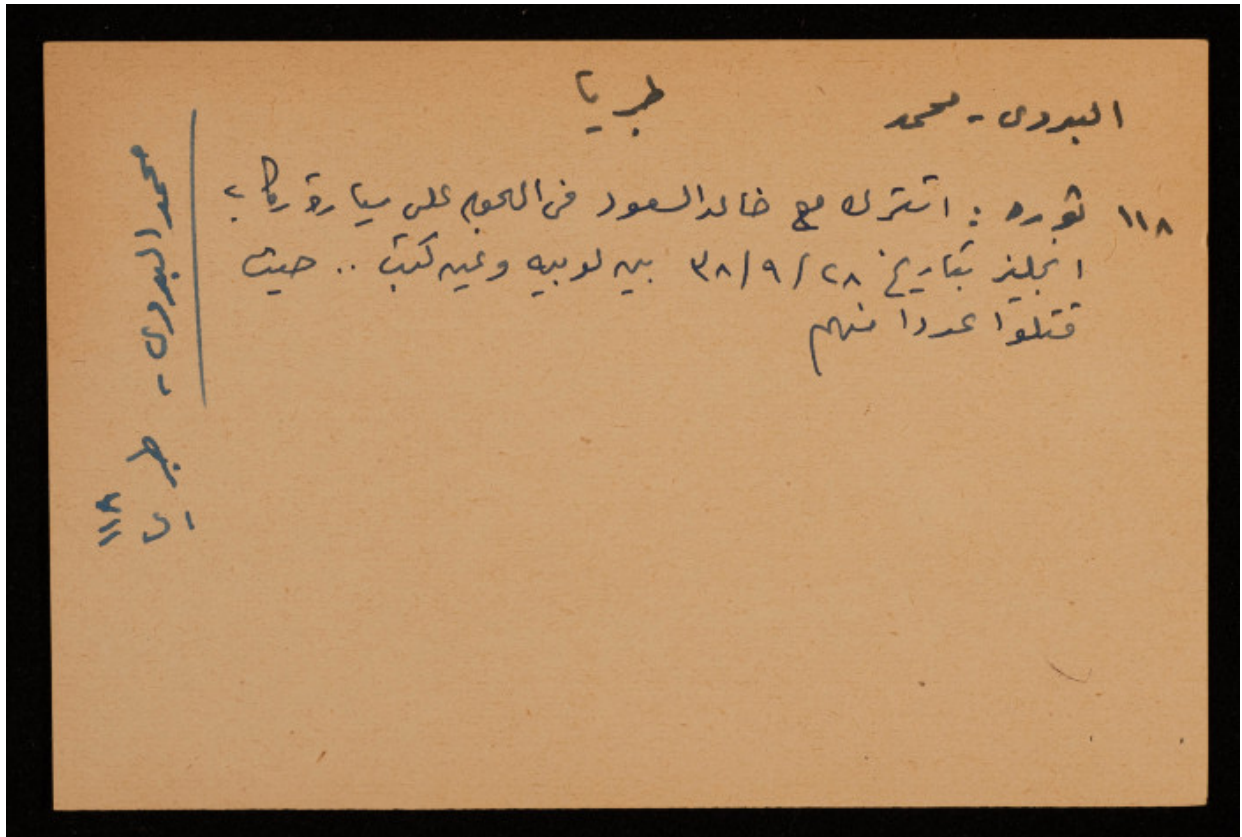 البدوى - محمد
طبريا
١١٨ ثوره : اشترك مع خالد السعود فى الهجوم على سيارة ركاب
انجليز بتاريخ ٢٨/٩/٣٨ بين لوبيه وعين كتب .. حيث
قتلوا عددا منهم
محمد البدوى - طبريا
١١٨